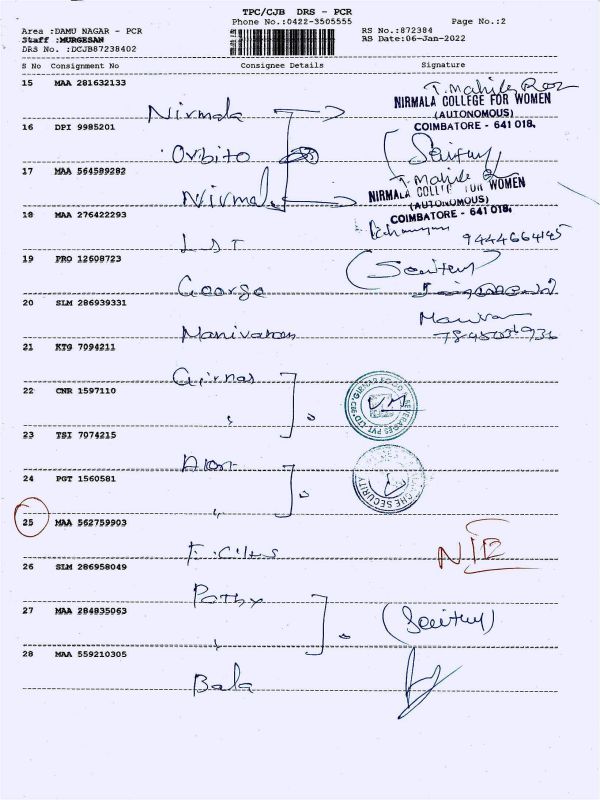 TPC/CJB DRS - PCR
Phone No.:0422-3505555 Page No.:2
Area :DAMU NAGAR - PCR RS No.:872384
Staff :MURGESAN RS Date:06-Jan-2022
DRS No. :DCJB87238402
S No Consignment No Consignee Details Signature
15 MAA 281632133
Nirmala
NIRMALA COLLEGE FOR WOMEN
(AUTONOMOUS)
COIMBATORE - 641 018.
16 DPI 9985201
Orbito
17 MAA 564589282
Nirmala
NIRMALA COLLEGE FOR WOMEN
(AUTONOMOUS)
COIMBATORE - 641 018.
18 MAA 276422293
9444664145
19 PRO 12608723
George
20 SLM 286939331
Manivaram
21 KTG 7094211
Girnar
22 CNR 1597110
"
23 TSI 7074215
24 PGT 1560581
"
25 MAA 562759903
26 SLM 286958049
Pothy
27 MAA 284835063
"
28 MAA 559210305
Bala